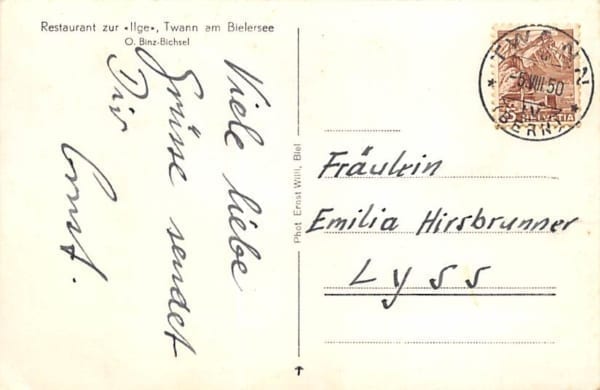 Restaurant zur «Ilge», Twann am Bielersee
O. Binz-Bichsel
Viele liebe
Grüsse sendet
Dir
Ernst.
Phot Ernst Willi, Biel
TWANN
-6.VIII.50
(BERN)
HELVETIA
Fräulein
Emilia Hirsbrunner
Lyss